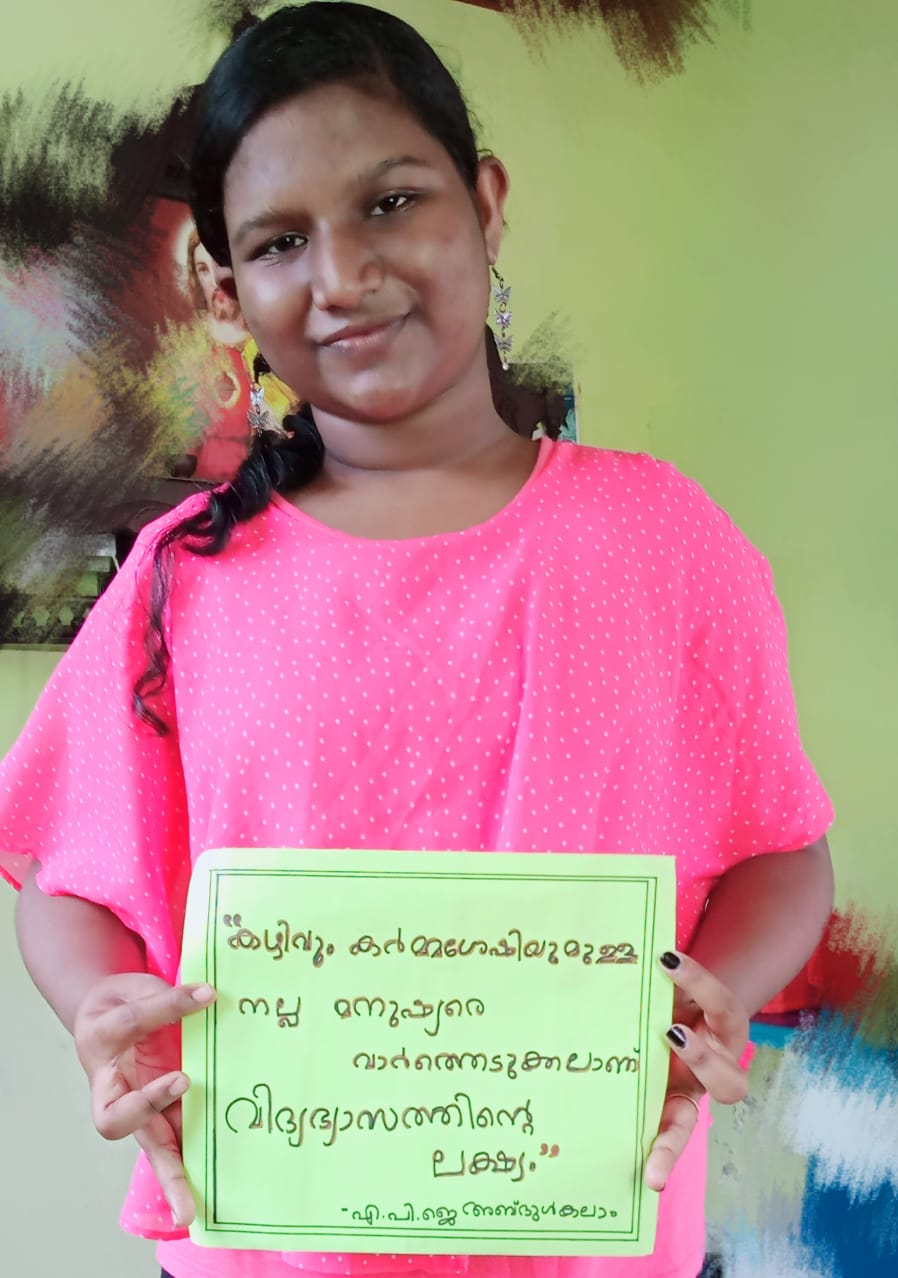 "കഴിവും കർമ്മശേഷിയുമുള്ള
നല്ല മനുഷ്യരെ
വാർത്തെടുക്കലാണ്
വിദ്യഭ്യാസത്തിന്റെ
ലക്ഷ്യം."
-എ.പി.ജെ അബ്ദുൾകലാം